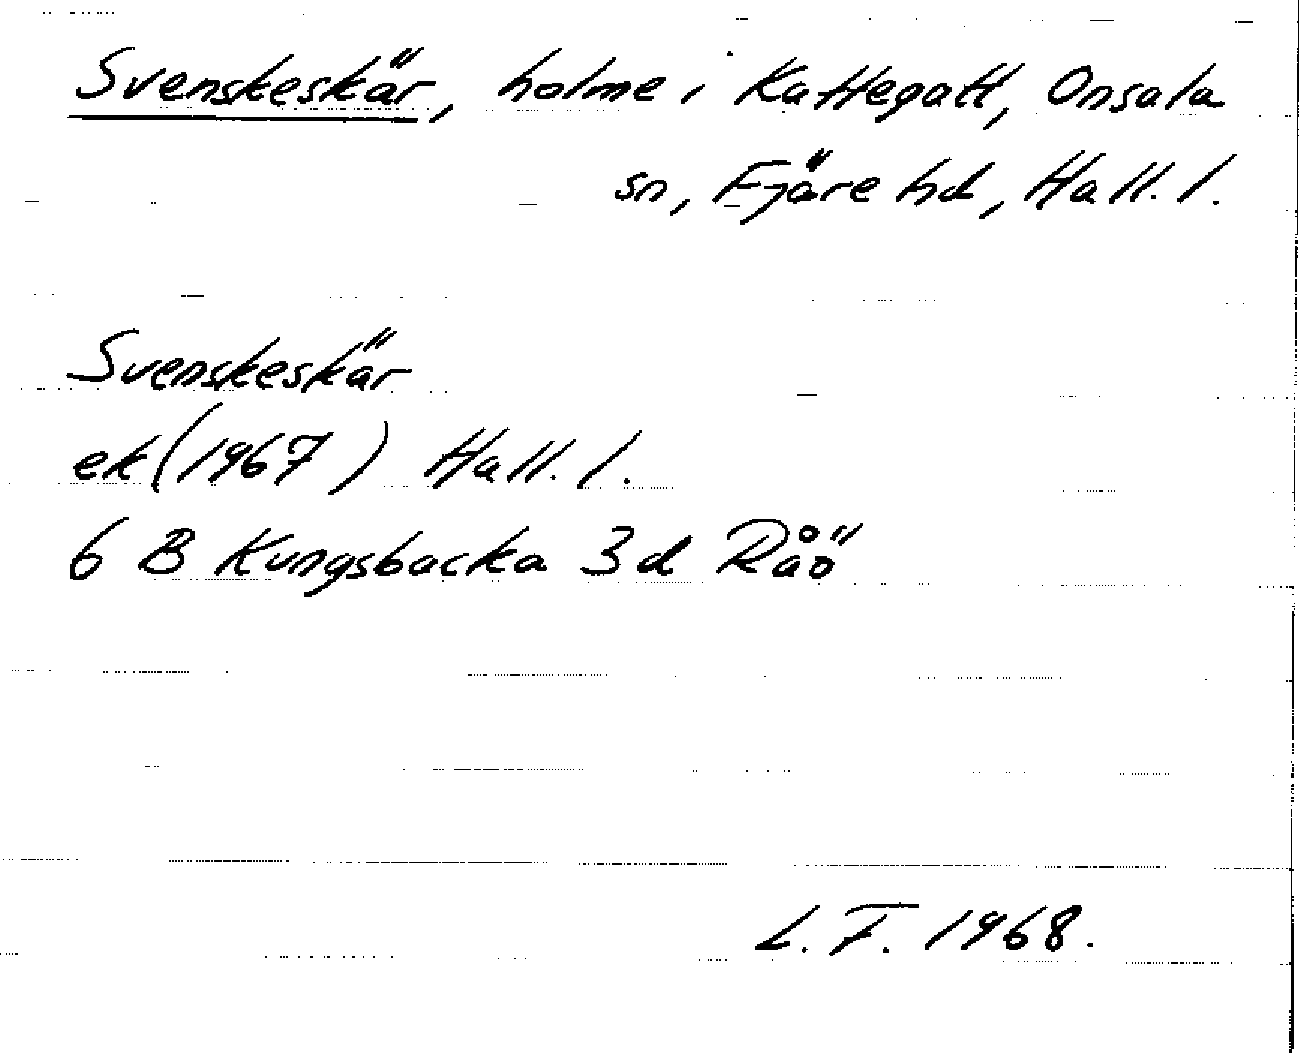 Svenskeskär, holme i Kattegatt, Onsala
sn, Fjäre hd, Hall. l.
Svenskeskär
ek (1967) Hall. l.
6 B Kungsbacka 3 d Råö
L. F. 1968.